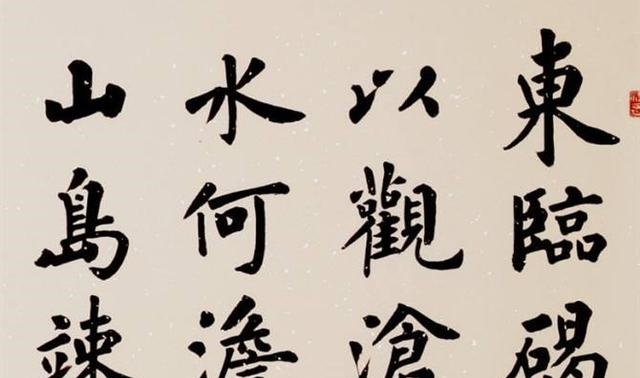 東臨碣
以觀滄
水何澹
山島竦